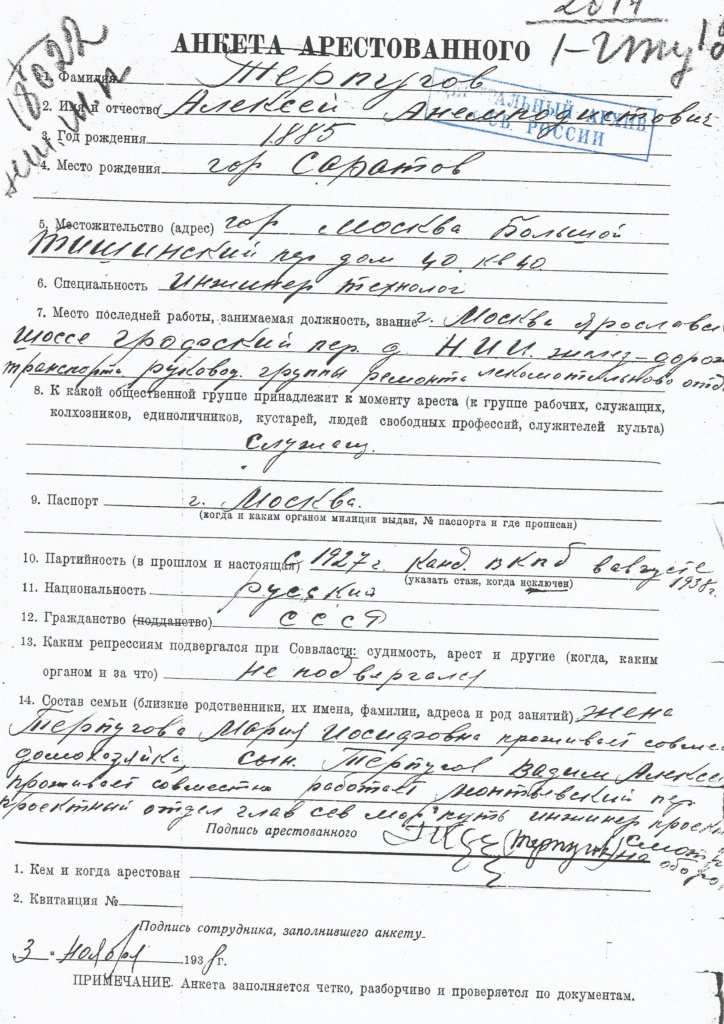 2011
1-Гту
18022
АНКЕТА АРЕСТОВАННОГО
ЦЕНТРАЛЬНЫЙ АРХИВ
ФСБ РОССИИ
1. Фамилия Терпугов
2. Имя и отчество Алексей Анемподистович
3. Год рождения 1885
4. Место рождения гор Саратов
5. Местожительство (адрес) гор Москва Большой
Тишинский пер дом 40 кв 40
6. Специальность инженер технолог
7. Место последней работы, занимаемая должность, звание г. Москва Ярославск
шоссе Графский пер. д. Н.И.И. желез-дорож
транспорта руковод. группы ремонта
8. К какой общественной группе принадлежит к моменту ареста (к группе рабочих, служащих,
колхозников, единоличников, кустарей, людей свободных профессий, служителей культа)
служащ.
9. Паспорт г. Москва.
(когда и каким органом милиции выдан, № паспорта и где прописан)
10. Партийность (в прошлом и настоящая) с 1927 г канд. ВКПб в августе
1938 г.
(указать стаж, когда исключен)
11. Национальность русский
12. Гражданство (подданство) СССР
13. Каким репрессиям подвергался при Соввласти: судимость, арест и другие (когда, каким
органом и за что) не подвергался
14. Состав семьи (близкие родственники, их имена, фамилии, адреса и род занятий) жена
Терпугова Мария Иосифовна проживает совмес
домохозяйка, сын. Терпугов Вадим Алексе
проживает совместно работает Леонтьевский пер
проектный отдел глав сев мор путь инженер проект
Подпись арестованного (Терпугов) смотр
на оборо
1. Кем и когда арестован
2. Квитанция №
Подпись сотрудника, заполнившего анкету
„3„ ноября 1938 г.
ПРИМЕЧАНИЕ. Анкета заполняется четко, разборчиво и проверяется по документам.